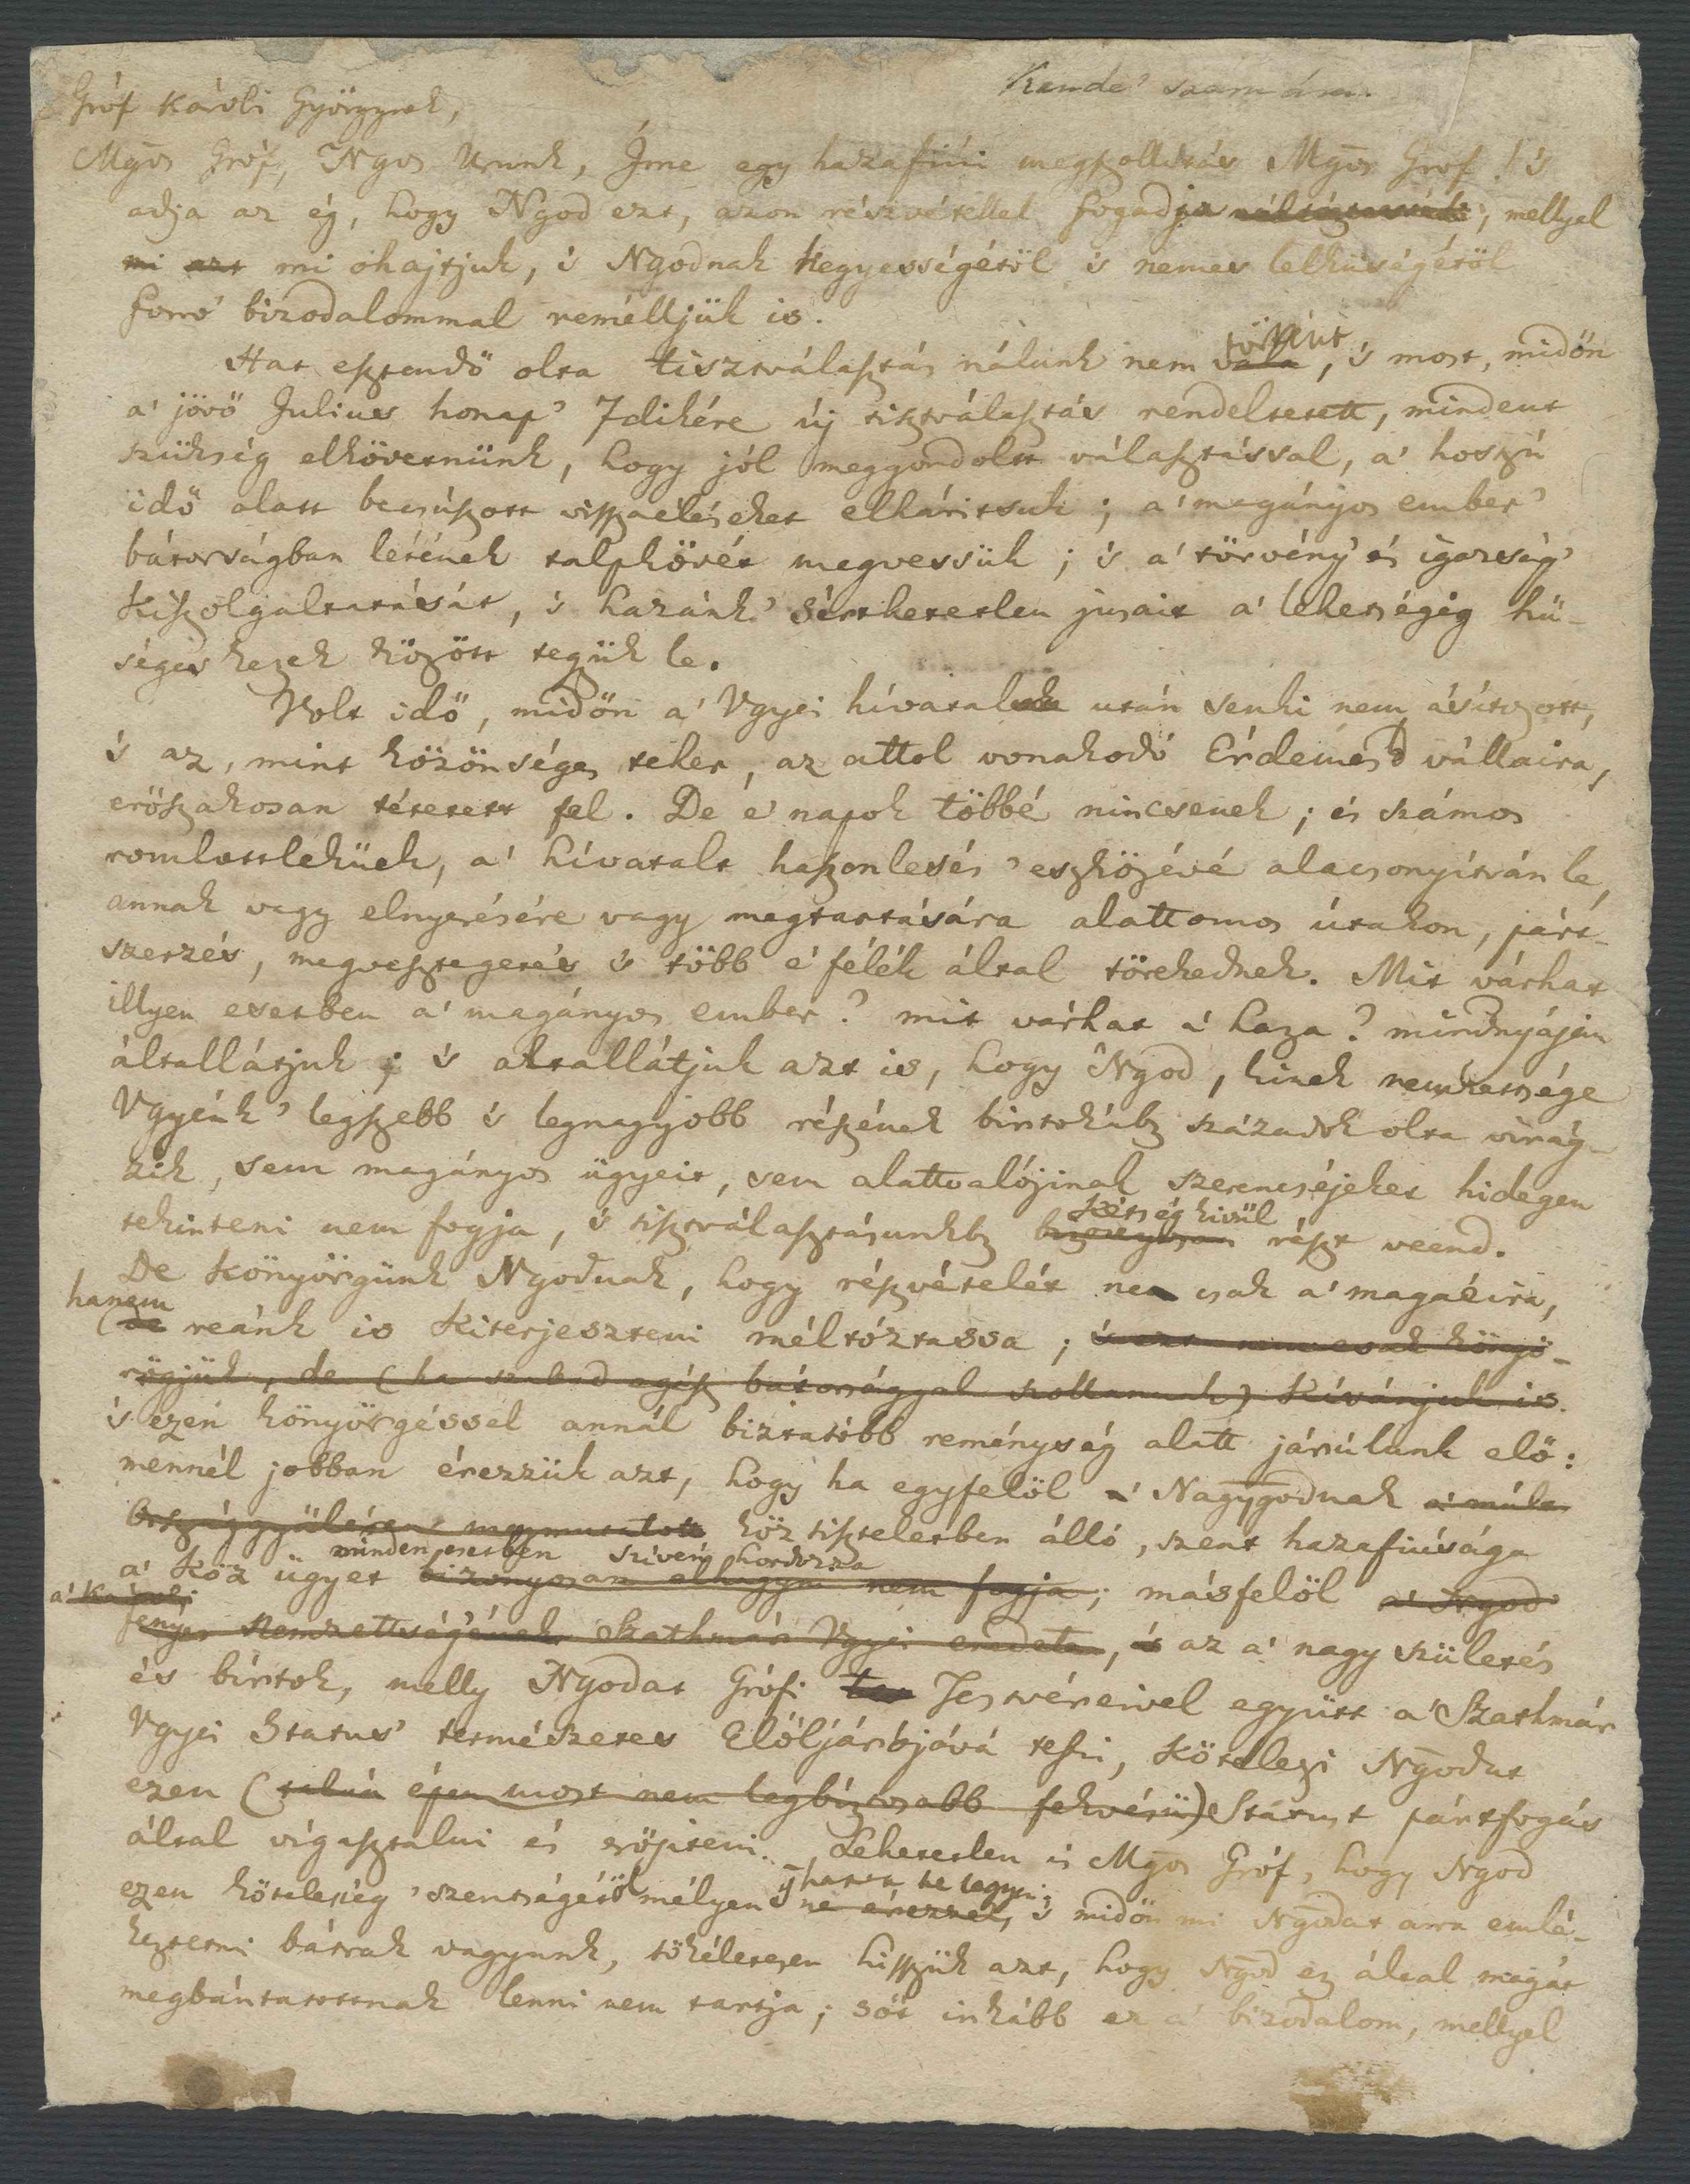 Kende' számára.
Gróf Károli Györgynek,
Mgos Gróf, Ngos Urunk, Íme egy hazafiúi megszollítás Mgos Gróf! 's
adja az ég, hogy Ngod ezt, azon részvétellel fogadja, mellyel
mi azt mi óhajtjuk, 's Ngodnak kegyességétöl 's nemes lelküségétöl
forró bizodalommal reméltjük is.
Hat esztendő olta tisztválasztás nálunk nem vala történt, 's most, midőn
a' jövő Julius honap' 7dikére új tisztválasztás rendeltetett, mindent
szükség elkövetnünk, hogy jól meggondolt választással, a' hoszú
idő alatt becsúszott visszaéléseket elhárítsuk; a' magányos ember'
bátorságban létének talpkövét megvessük; 's a' törvény 's igazság'
kiszolgaltatását, 's hazánk' sérthetetlen jusait a' lehetségig hü-
séges kezek között tegyük le.
Volt idő, midőn a' Vgyei hívatalok után senki nem ásítozott,
's az, mint közönséges teher, az attol vonakodó Érdemesb vállaira,
erőszakosan tétetett fel. De e' napok többé nincsenek; és számos
romlottlekűek, a' hívatalt haszonlesés' eszközévé alacsonyítván le,
annak vagy elnyerésére vagy megtartására alattomos útakon, párt-
szerzés, megvesztegetés 's több e' félék által törekednek. Mit várhat
illyen esetben a' magányos ember? mit várhat a' haza? mindnyájan
általlátjuk; 's általlátjuk azt is, hogy Ngod, kinek nemzetsége
Vgyénk' legszebb 's legnagyobb részének birtokábz századok olta virág-
zik, sem magányos ügyeit, sem alattvalójinak szerencséjeket hidegen
tekinteni nem fogja, 's tisztválasztásunkbz bizonyosan kétség kivül részt veend.
De könyörgünk Ngodnak, hogy részvételét nem csak a' magaéira,
hanem
de reánk is kiterjeszteni méltóztassa; 's ezt nem csak könyö-
rögjük, de (ha szabad egész bátorsággal szollanunk) kívánjuk is.
's ezen könyörgéssel annál biztatóbb reménység alatt járúlunk elő:
mennél jobban érezzük azt, hogy ha egyfelöl a' Nagygodnak a' múlt
Országgyülésen megmutatott köz tiszteletben álló, szent hazafiúsága
minden esetben szívén hordozza
a' köz ügyet bizonyosan elhagyni nem fogja; másfelöl a' Ngod
a' Károli
fényes Nemzettségének Szathmár Vgyei eredete, és az a' nagy születés
és birtok, melly Ngodat Grófi Testvéreivel együtt a' Szathmár
Vgyei Status' természetes Elöljárójává teszi, kötelezi Ngodat
ezen (talán épen most nem legbiztosabb fekvésü) Státust pártfogás
által vígasztalni és erősíteni. Lehetetlen is Mgos Gróf, hogy Ngod
hatva ne legyen;
ezen kötelesség' szentségétöl mélyen ne érezné, 's midőn mi Ngodat arra emlé-
keztetni bátrak vagyunk, tökéletesen hisszük azt, hogy Ngod ez által magát
megbántatottnak lenni nem tartja; söt inkább ez a' bizodalom, mellyel